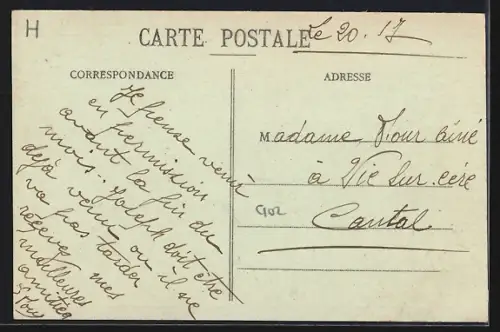 H
CARTE POSTALE
Le 20. 17
CORRESPONDANCE
ADRESSE
Je pense venir
en permission
avant la fin du
mois.. Joseph doit être
déjà venu ou il ne
va pas tarder
recevez mes
meilleures
amitiés
Madame Four ainé
à Vic sur. cère
Cantal